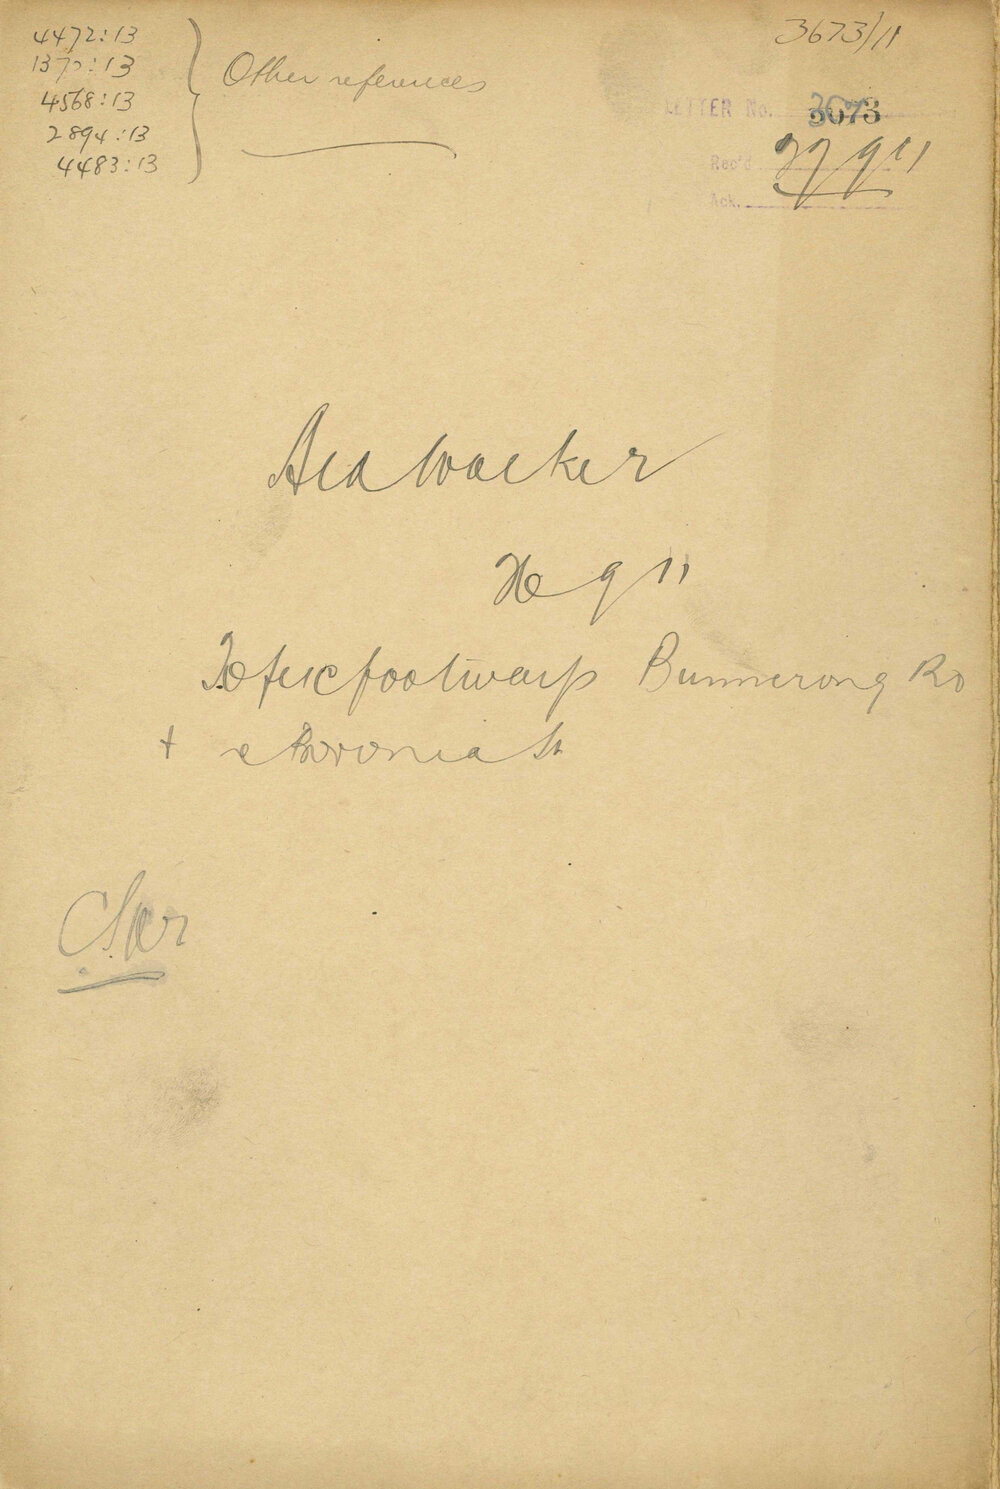 4472:13
1370:13
4568:13
2894:13
4483:13
Other references
3673/11
LETTER No. 3673
Rec'd 27 9 11
Ack.
Ald Walker
9 11
footways Bunnerong Rd
+ Boronia St